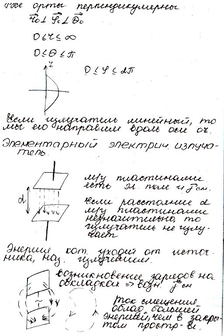 орты перпендикулярны
r̄₀ ⊥ φ̄₀ ⊥ θ̄₀
0 ≤ r ≤ ∞
0 ≤ θ ≤ π
0 ≤ φ ≤ 2π
z
Если излучатель линейный, то
мы его направим вдоль оси oz.
Элементарный электрич излуча-
тель
м/у пластинами
есть эл поле и
если расстояние d
м/у пластинами
незначительно, то
излучатель не излу-
чает
d
Энергия кот. уходит от источ-
ника, наз. излучения
возникновение зарядов на
обкладках
Ток смещения
облад. большей
энергией, чем в закры-
том простр-ве